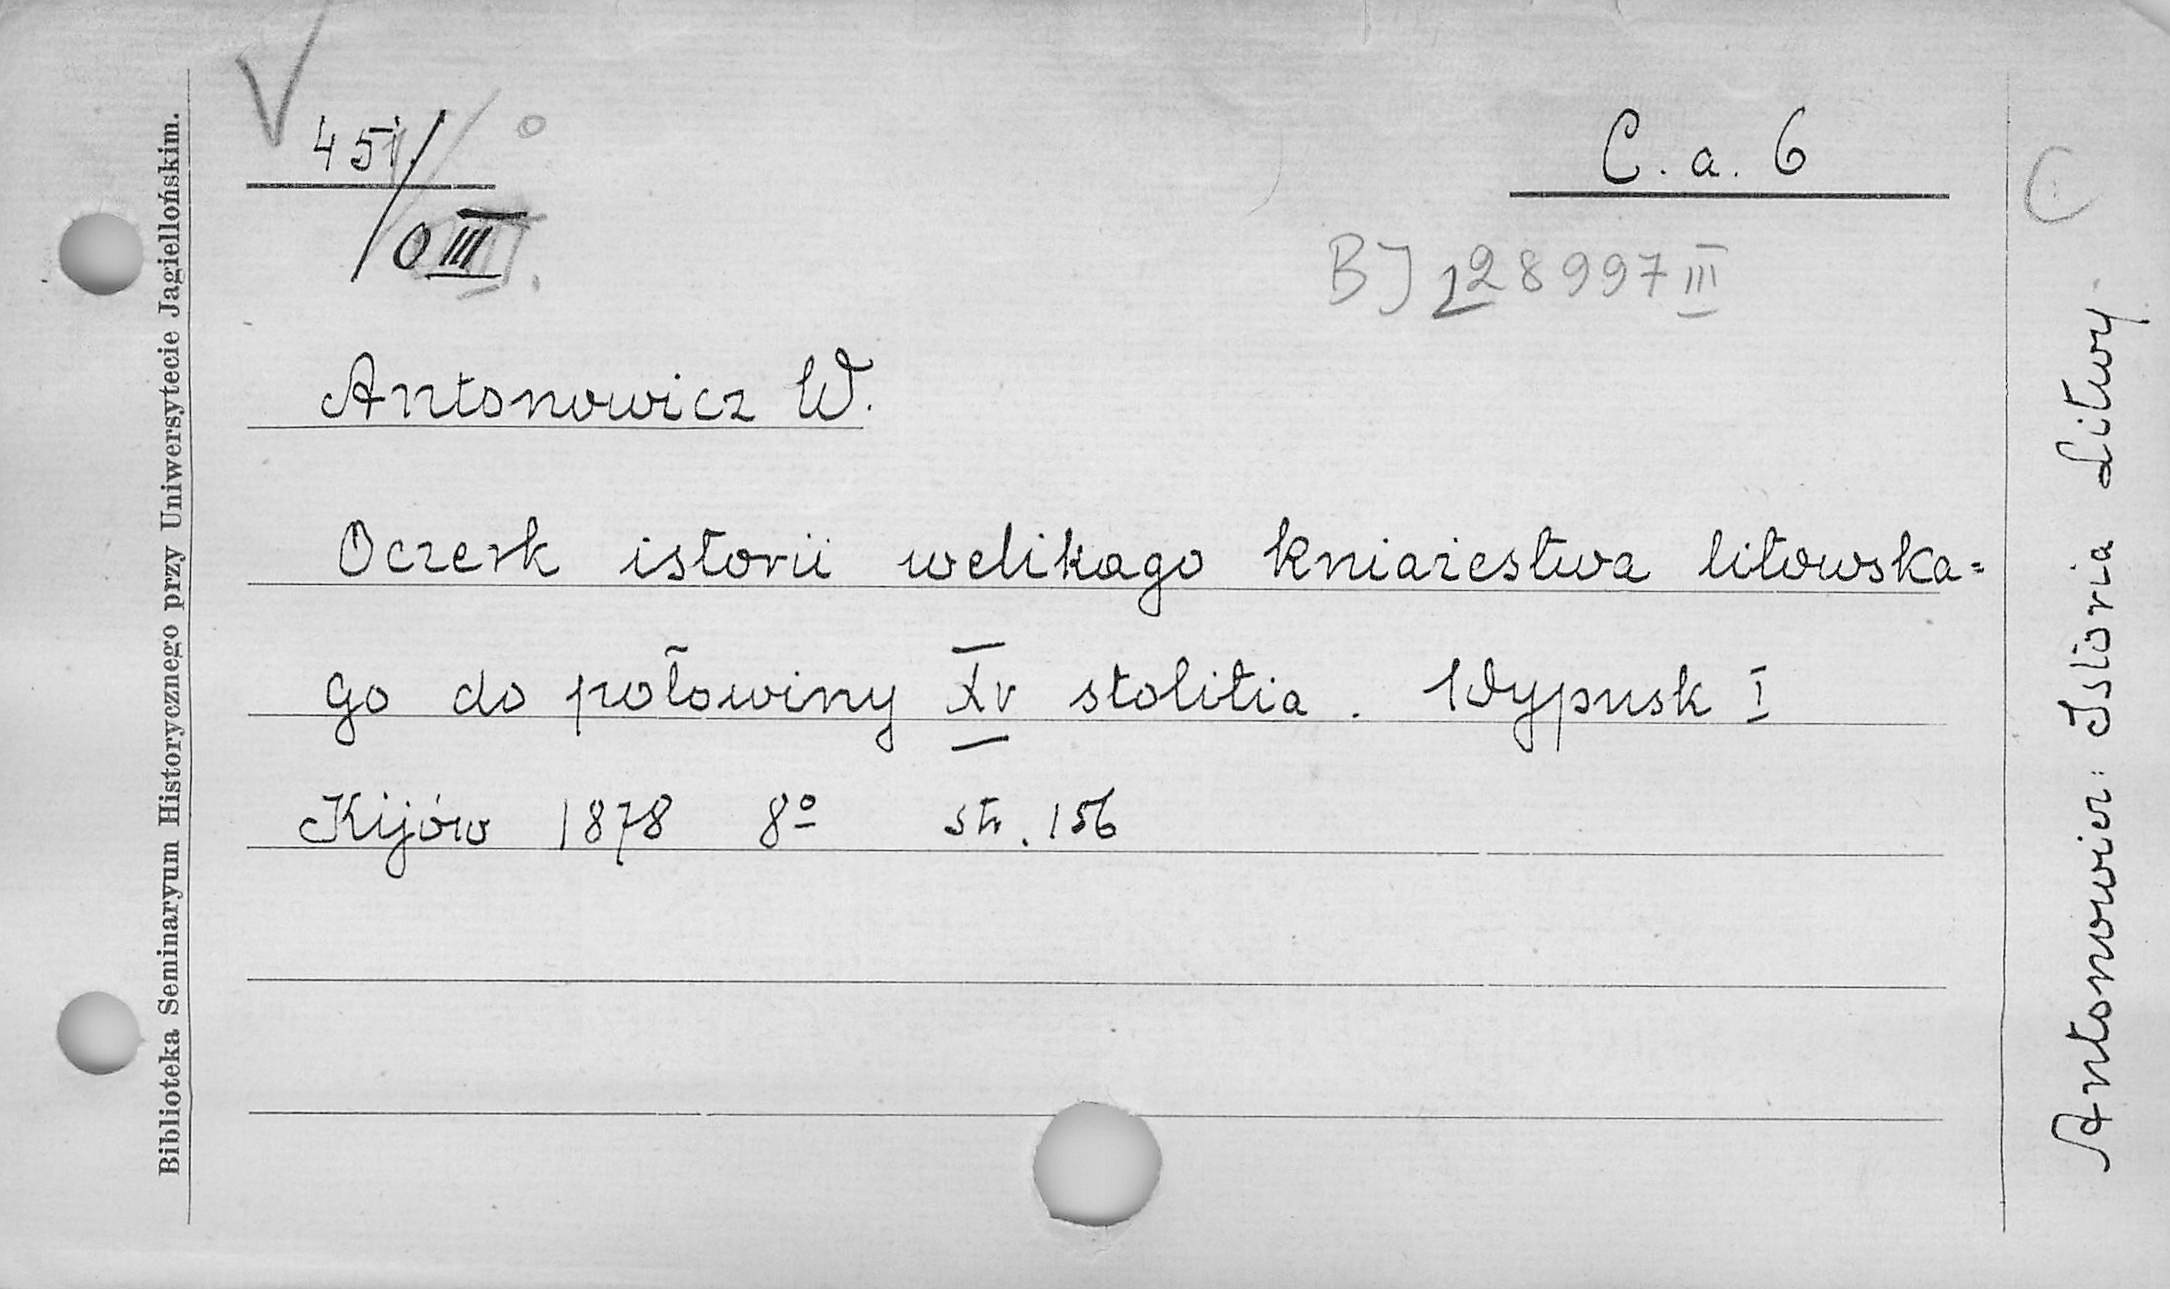 V
451/
0III
C. a. 6
C
BJ 128997 III
Antonowicz W.
Oczerk istorii welikago kniaziestwa litowska=
go do połowiny XV stolitia. Wypusk I
Kijów 1878 8º str. 156
Biblioteka Seminaryum Historycznego przy Uniwersytecie Jagiellońskim.
Antonowicz: Istoria Litwy.